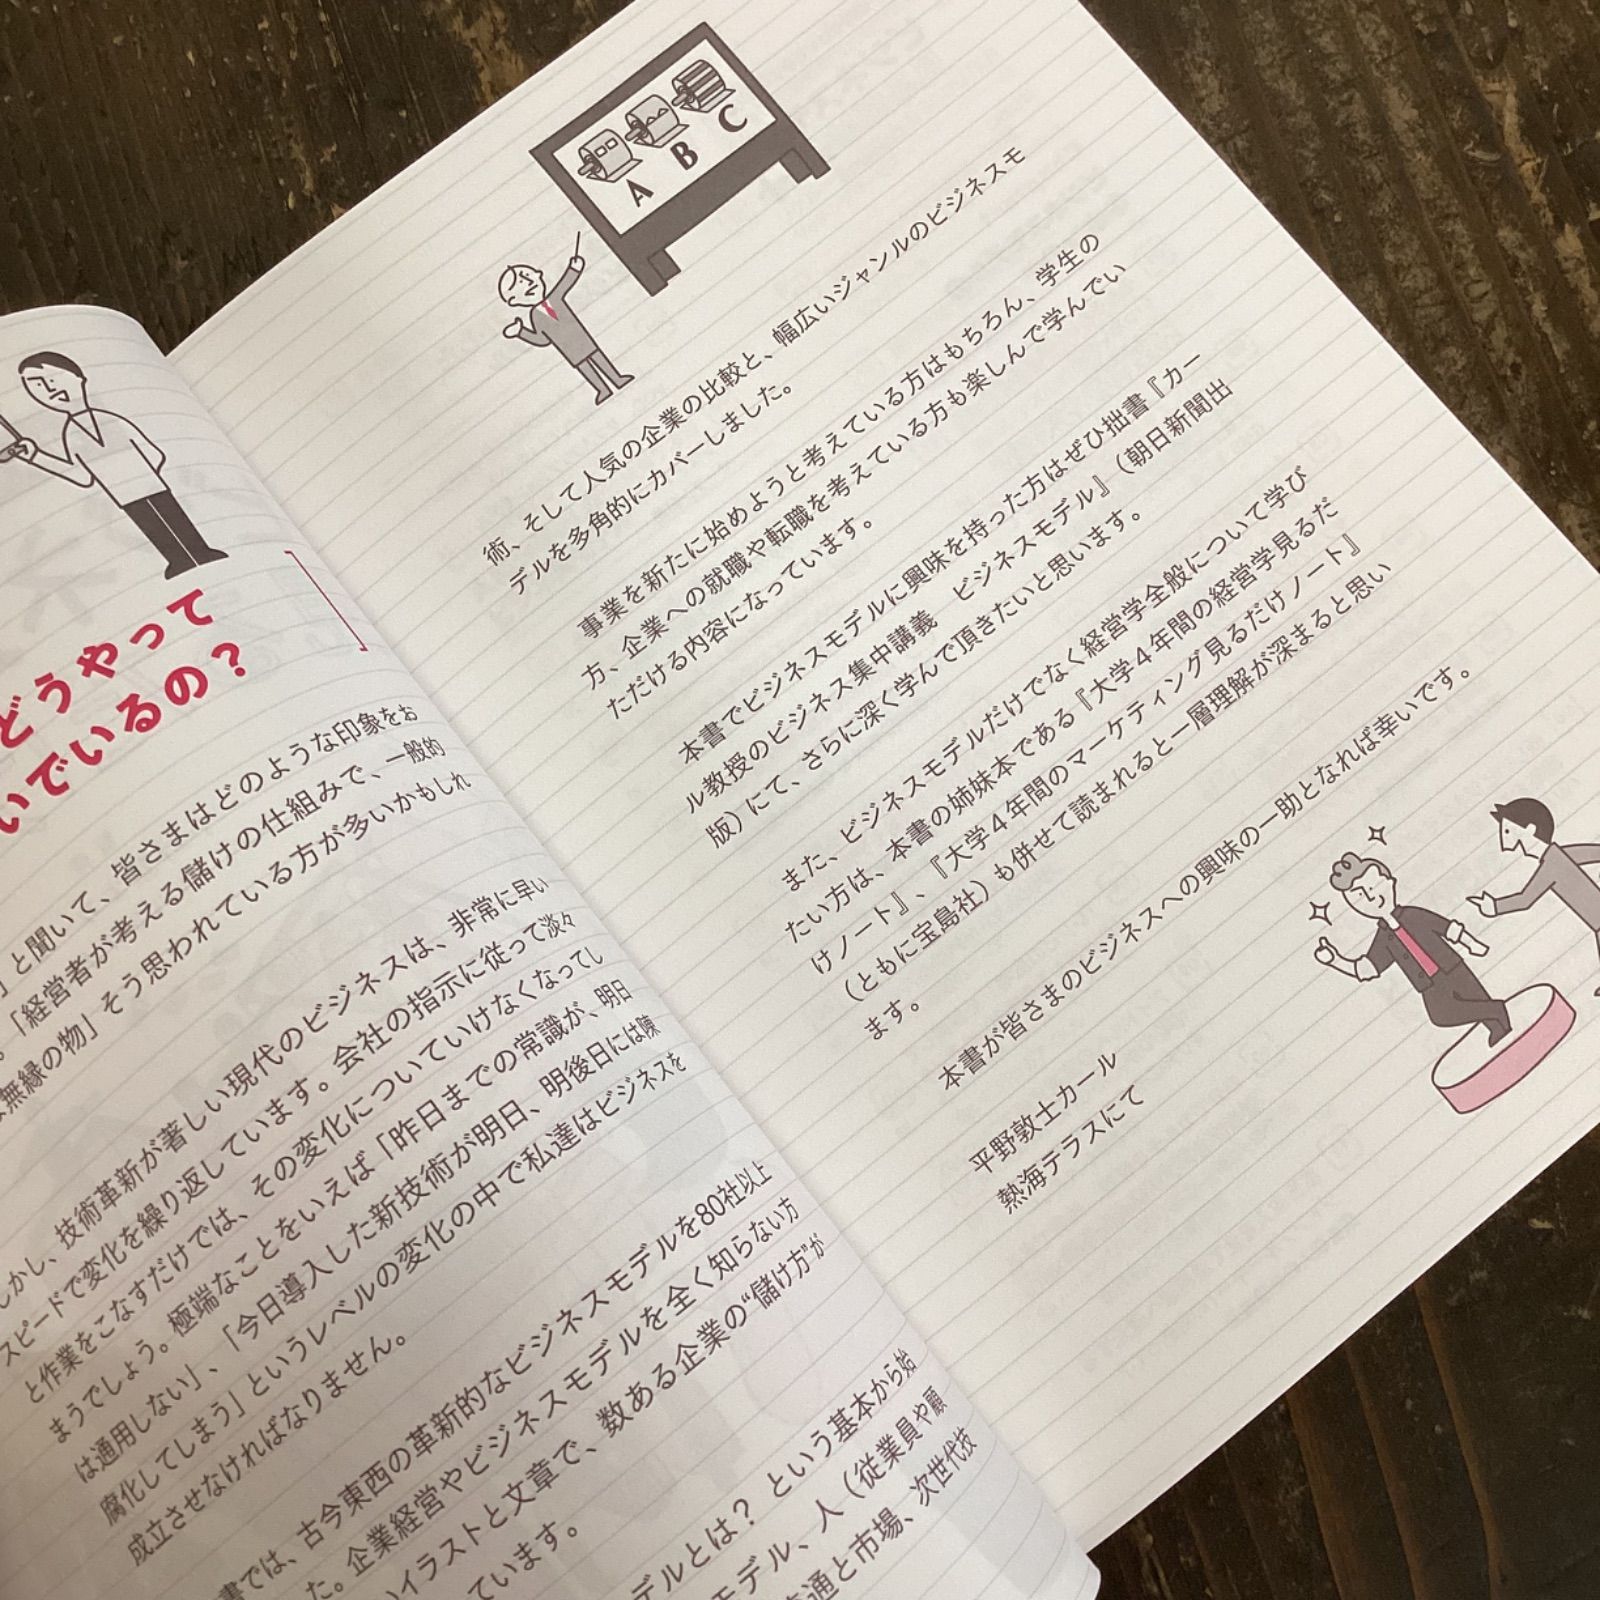 どうやって
いでいるの？
」と聞いて、皆さまはどのような印象をお
。「経営者が考える儲けの仕組みで、一般的
無縁の物」そう思われている方が多いかもしれ
しかし、技術革新が著しい現代のビジネスは、非常に早い
スピードで変化を繰り返しています。会社の指示に従って淡々
と作業をこなすだけでは、その変化についていけなくなってし
まうでしょう。極端なことをいえば「昨日までの常識が、明日
は通用しない」、「今日導入した新技術が明日、明後日には陳
腐化してしまう」というレベルの変化の中で私達はビジネスを
成立させなければなりません。
書では、古今東西の革新的なビジネスモデルを80社以上
た。企業経営やビジネスモデルを全く知らない方
イラストと文章で、数ある企業の“儲け方”が
ています。
デルとは？ という基本から始
モデル、人（従業員や顧
通と市場、次世代技
A B C
術、そして人気の企業の比較と、幅広いジャンルのビジネスモ
デルを多角的にカバーしました。
事業を新たに始めようと考えている方はもちろん、学生の
方、企業への就職や転職を考えている方も楽しんで学んでい
ただける内容になっています。
本書でビジネスモデルに興味を持った方はぜひ拙書『カー
ル教授のビジネス集中講義　ビジネスモデル』（朝日新聞出
版）にて、さらに深く学んで頂きたいと思います。
また、ビジネスモデルだけでなく経営学全般について学び
たい方は、本書の姉妹本である『大学４年間の経営学見るだ
けノート』、『大学４年間のマーケティング見るだけノート』
（ともに宝島社）も併せて読まれると一層理解が深まると思い
ます。
本書が皆さまのビジネスへの興味の一助となれば幸いです。
平野敦士カール
熱海テラスにて